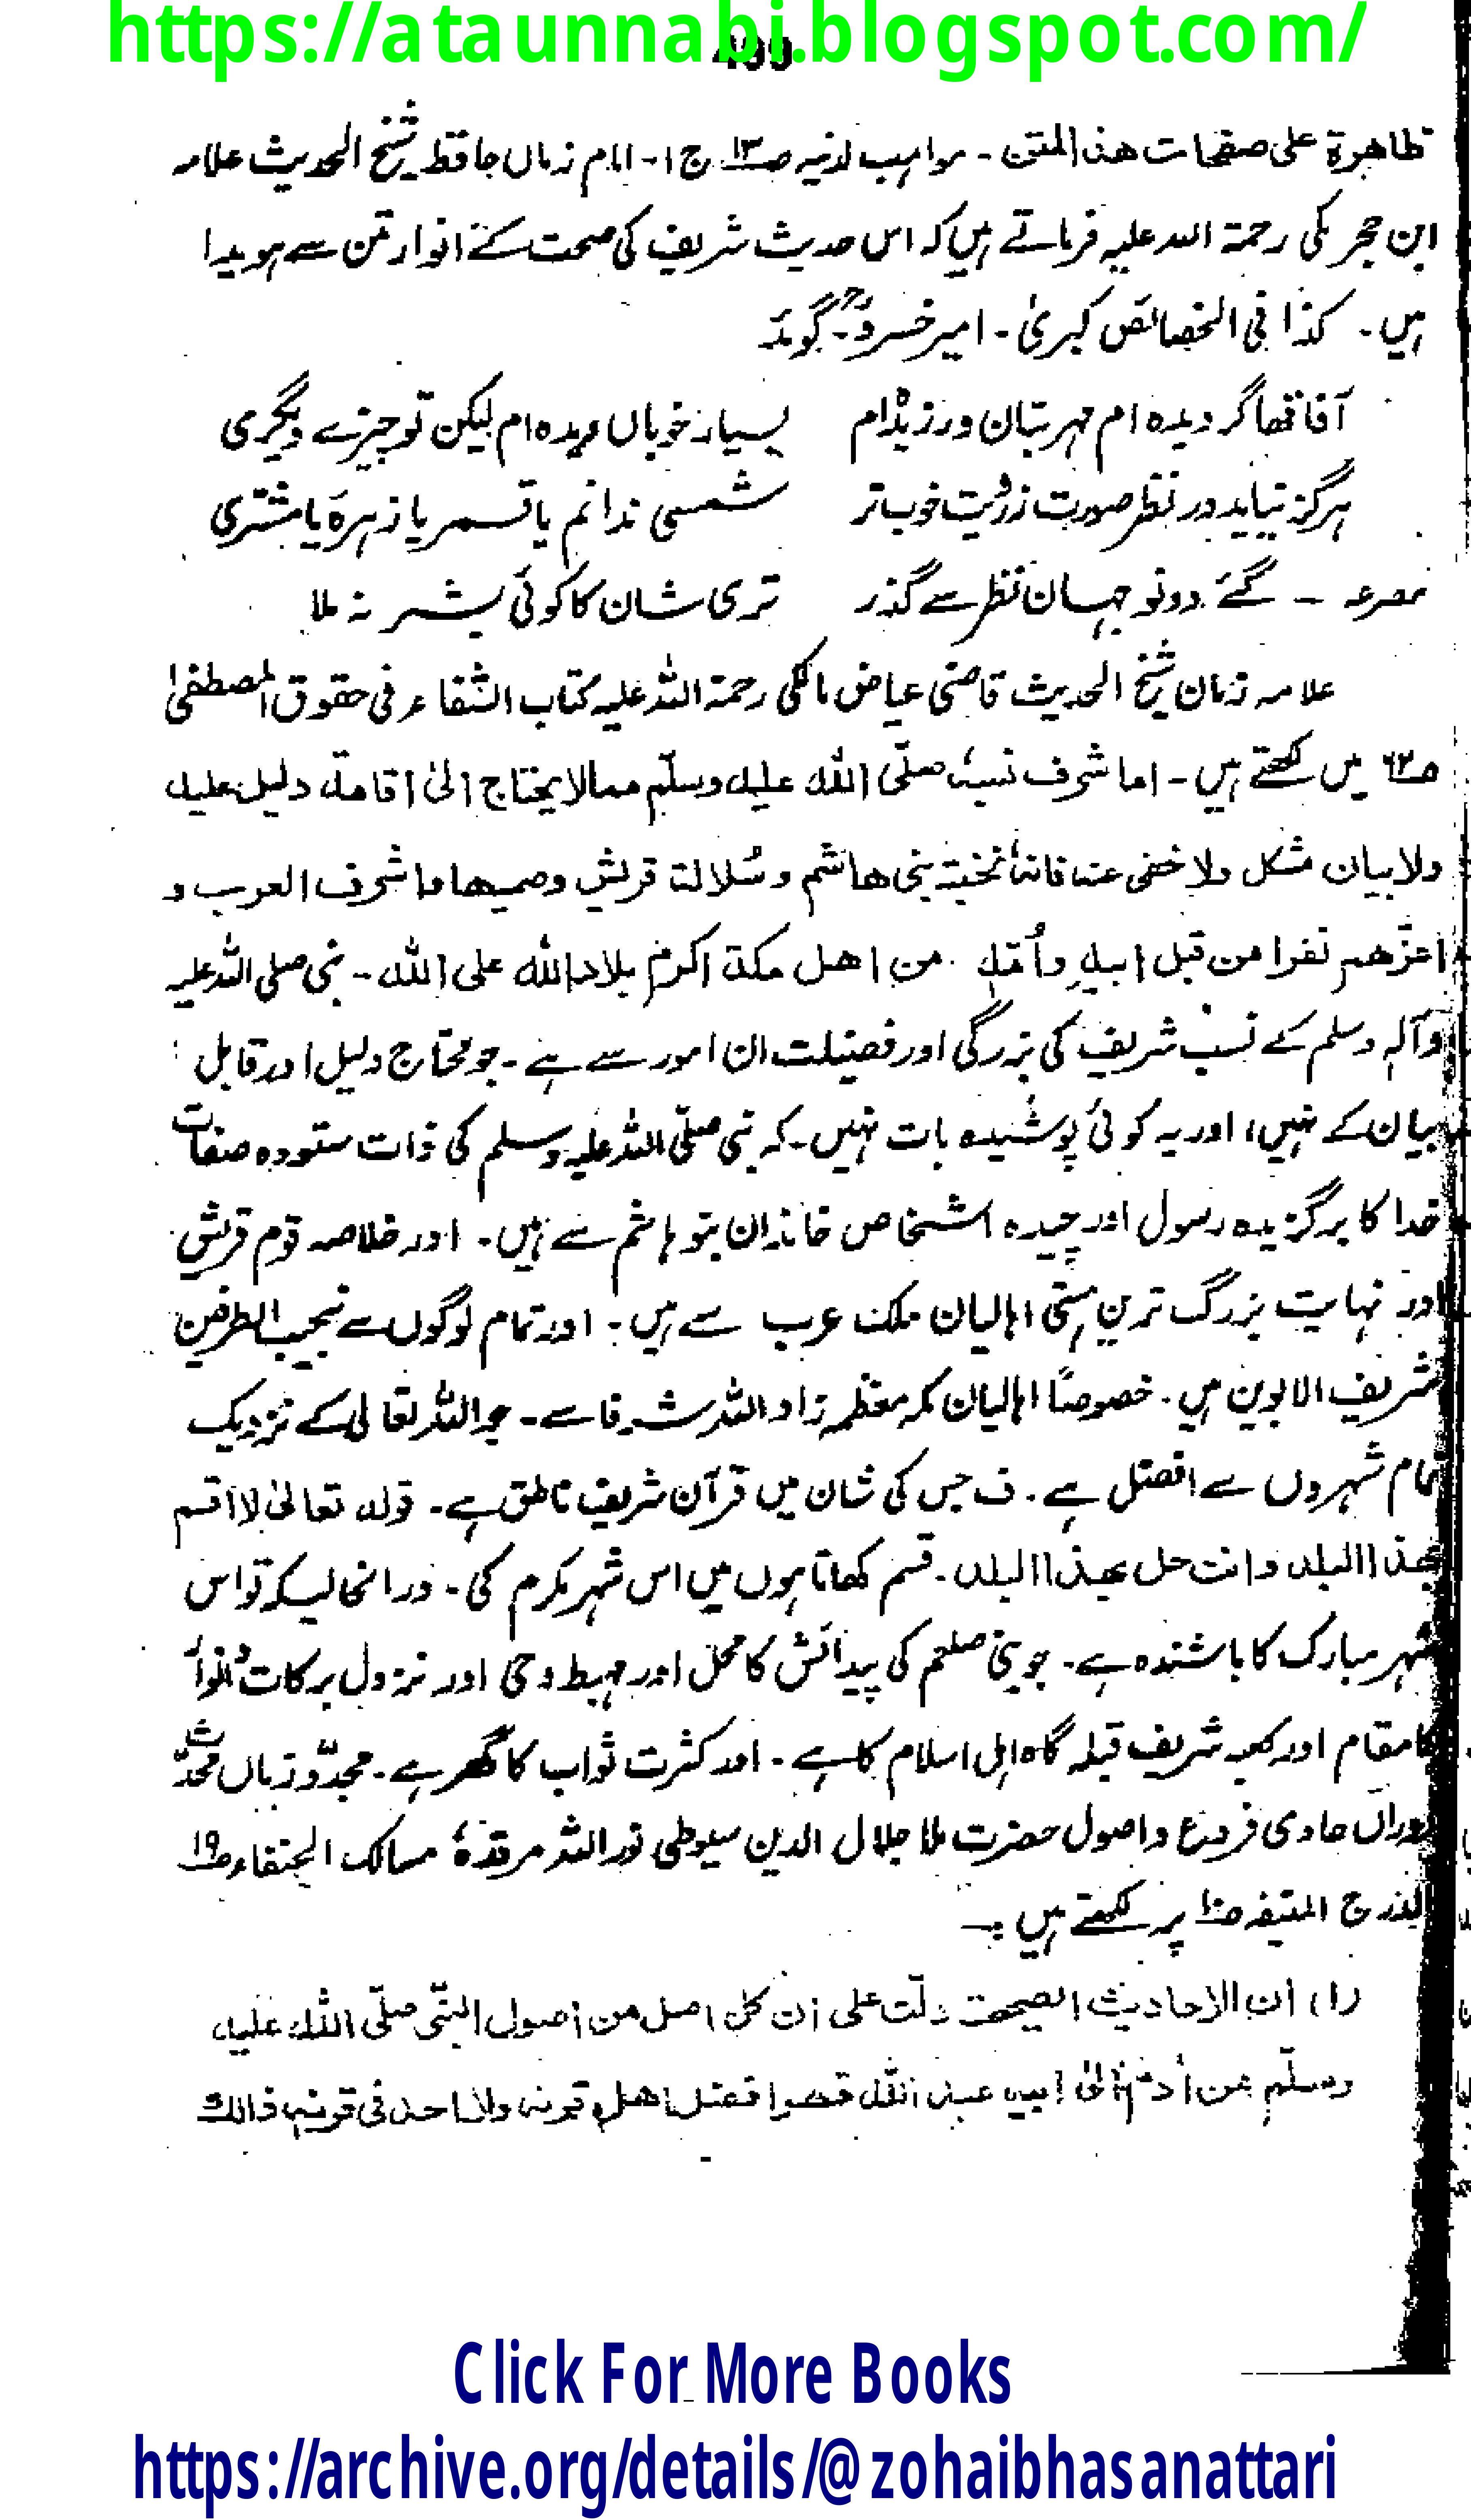 https://ataunnabi.blogspot.com/
ظاهرة على صفحات هذا المتن ۔ مواہب لدنیہ صـ۱۳ ج ۱۔ امام زماں حافظ شیخ الحدیث علامہ
ابن حجر مکی رحمۃ اللہ علیہ فرماتے ہیں کہ اس حدیث شریف کی صحت کے انوار متن سے ہویدا
ہیں ۔ کذا فی الخصائص کبریٰ ۔ امیر خسروؒ ۔ گوید
آفاقہا گر دیدہ ام مہر بتان ورزیدہ ام بسیار خوباں دیدہ ام لیکن تو چیزے دیگری
ہرگز نیاید در نظر صورت زرویت خوب تر شمسی ندانم یا قمر یا زہرہ یا مشتری
مصرعہ ۔ گئے دونو جہان نظر سے گذر تری شان کا کوئی بشر نہ ملا
علامہ زمان شیخ الحدیث قاضی عیاض مالکی رحمۃ اللہ علیہ کتاب الشفاء فی حقوق المصطفیٰ
صـ۶۳ میں لکھتے ہیں ۔ اما شرف نسبہٗ صلّی اللہ علیہ وسلّم مما لا یحتاج الیٰ اقامۃ دلیل علیہ
ولا بیان مشکل ولا خفی عنہ فانہٗ نخبۃ بنی ھاشم و سُلالۃ قریش وصمیھا واشرف العرب و
اعزّھم نفرا من قبل ابیہِ واُمّہٖ ۔ من اھل مکۃ اکرم بلاد اللہ علی اللہ ۔ نبی صلی اللہ علیہ
وآلہٖ وسلم کے نسب شریف کی بزرگی اور فضیلت ان امور سے ہے ۔ جو محتاج دلیل اور قابل
بیان کے نہیں، اور یہ کوئی پوشیدہ بات نہیں ۔ کہ نبی صلّی اللہ علیہ وسلم کی ذات ستودہ صفات
خدا کا برگزیدہ رسول اور چیدہ اشخاص خاندان بنو ہاشم سے ہیں ۔ اور خلاصہ قوم قریش
اور نہایت بزرگ ترین ہستی اہالیان ملک عرب سے ہیں ۔ اور تمام لوگوں سے نجیب الطرفین
شریف الابوین ہیں ۔ خصوصًا اہالیان مکہ معظمہ زاد اللہ شرفا سے ۔ جو اللہ تعالیٰ کے نزدیک
تمام شہروں سے افضل ہے ۔ ف جس کی شان میں قرآن شریف ناطق ہے ۔ قولہ تعالیٰ لا اقسم
بھذا البلد وانت حل بھذا البلد ۔ قسم کھاتا ہوں میں اس شہر مکرم کی ۔ درانحالیکہ تو اس
شہر مبارک کا باشندہ ہے ۔ جو نبی صلعم کی پیدائش کا محل اور مہبط وحی اور نزول برکات و انوار
کا مقام اور کعبہ شریف قبلہ گاہ اہل اسلام کا ہے ۔ اور کثرت ثواب کا گھر ہے ۔ مجدّد زباں محدّث
دوراں حاوی فروع واصول حضرت ملا جلال الدین سیوطی نور اللہ مرقدہٗ مسالک الحنفاء صـ۱۹
الدرج المنیفہ صـ۱۰ پر لکھتے ہیں :۔
(۱) ان الاحادیث الصحیحۃ دلّت علی ان کل اصل من اصول النبّی صلّی اللہ علیہ
وسلّم من اٰدم الیٰ ابیہ عبد اللہ فھوا فضل اھل قرنہ ولا احد فی قرنہ ذالک
Click For More Books
https://archive.org/details/@zohaibhasanattari